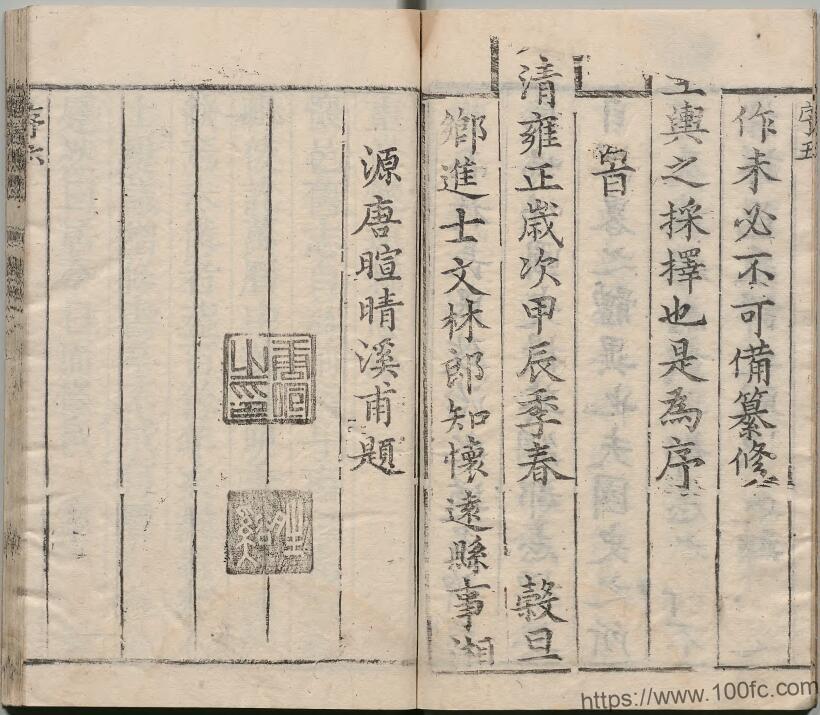 序五
作未必不可備纂修
輿之採擇也是為序
旹
清雍正歲次甲辰季春 穀旦
鄉進士文林郎知懷遠縣事湘
源唐暄晴溪甫題
唐暄之印
序六
https://www.100fc.com